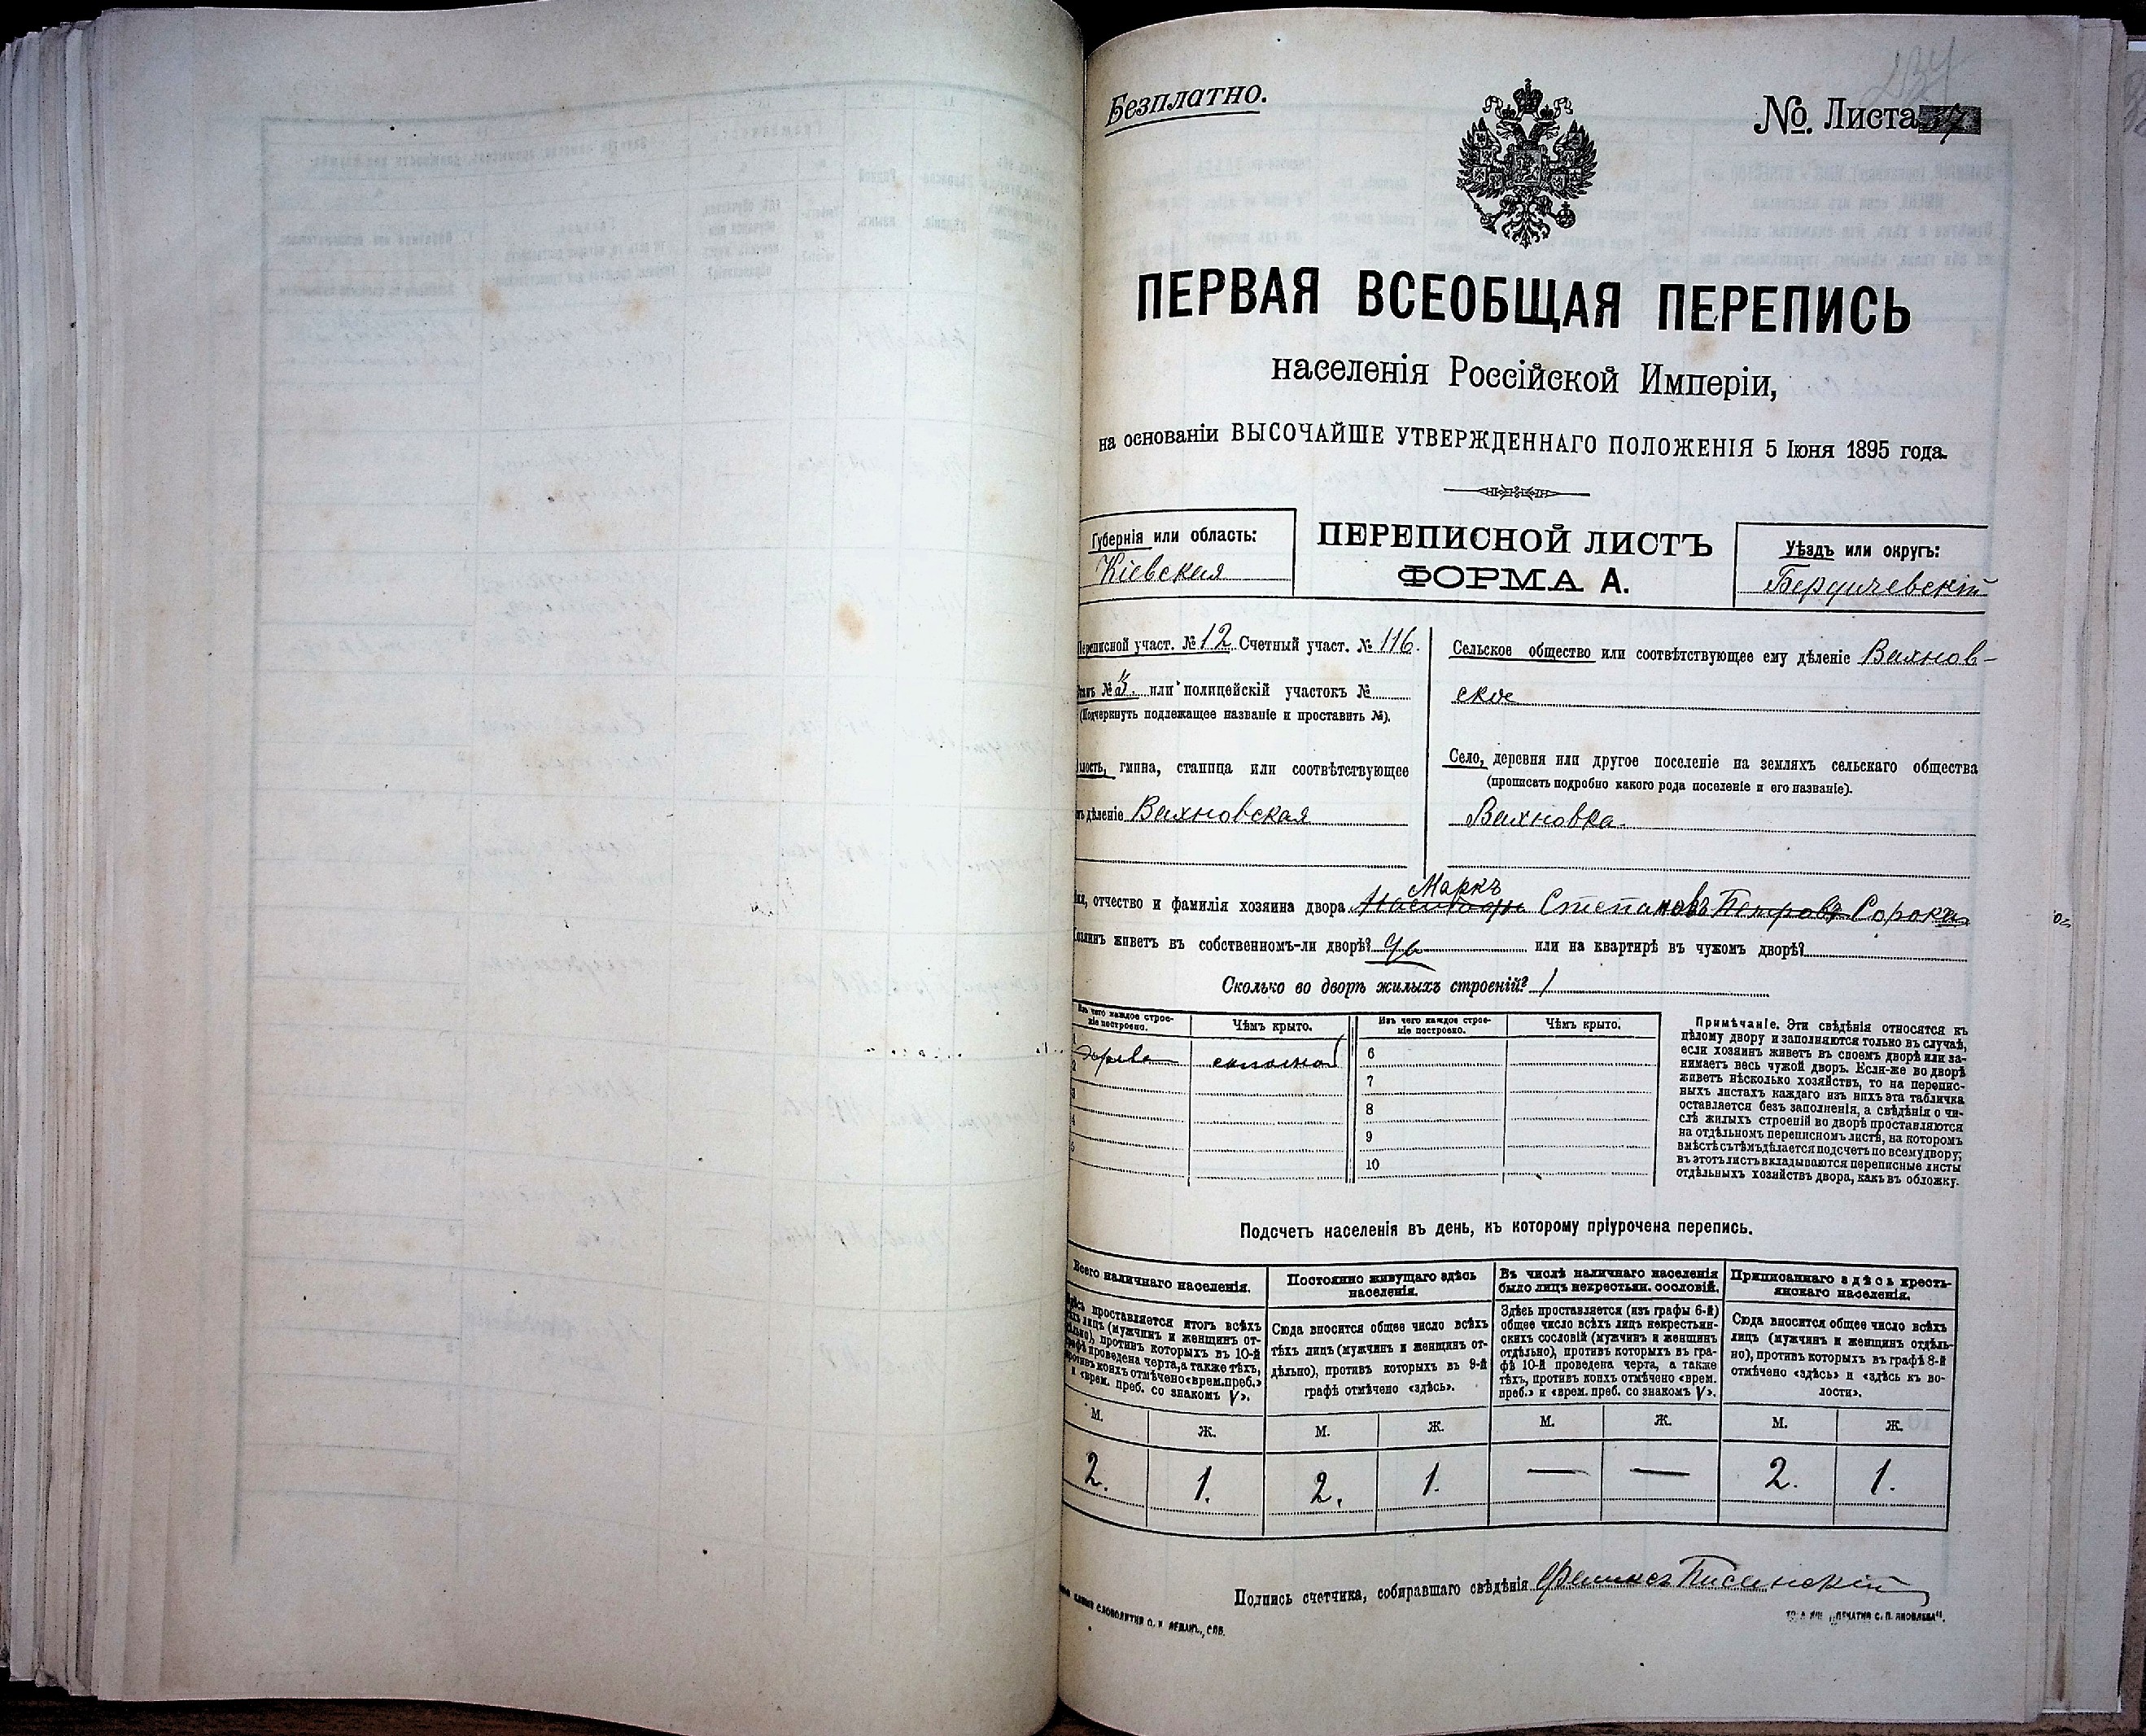 Безплатно.
№ Листа
ПЕРВАЯ ВСЕОБЩАЯ ПЕРЕПИСЬ
населенія Россійской Имперіи,
на основаніи ВЫСОЧАЙШЕ УТВЕРЖДЕННАГО ПОЛОЖЕНІЯ 5 Іюня 1895 года.
Губернія или область:
Кіевская
ПЕРЕПИСНОЙ ЛИСТЪ
ФОРМА А.
Уѣздъ или округъ:
Бердичевскій
Переписной участ. № 12 Счетный участ. № 116.
Станъ № 3. или полицейскій участокъ №
(Подчеркнуть подлежащее названіе и проставить №).
Волость, гмина, станица или соотвѣтствующее
имъ дѣленіе Вахновская
Сельское общество или соотвѣтствующее ему дѣленіе Вахнов-
ское
Село, деревня или другое поселеніе на земляхъ сельскаго общества
(прописать подробно какого рода поселеніе и его названіе).
Вахновка.
Маркъ
Имя, отчество и фамилія хозяина двора Степановъ Петровъ Сорока
Хозяинъ живетъ въ собственномъ-ли дворѣ? да или на квартирѣ въ чужомъ дворѣ?
Сколько во дворѣ жилыхъ строеній? 1
Изъ чего каждое строе-
ніе построено.
Чѣмъ крыто.
Изъ чего каждое строе-
ніе построено.
Чѣмъ крыто.
1 дерева соломой
2
3
4
5
6
7
8
9
10
Примѣчаніе. Эти свѣдѣнія относятся къ
цѣлому двору и заполняются только въ случаѣ,
если хозяинъ живетъ въ своемъ дворѣ или за-
нимаетъ весь чужой дворъ. Если-же во дворѣ
живетъ нѣсколько хозяйствъ, то на перепис-
ныхъ листахъ каждаго изъ нихъ эта табличка
оставляется безъ заполненія, а свѣдѣнія о чи-
слѣ жилыхъ строеній во дворѣ проставляются
на отдѣльномъ переписномъ листѣ, на которомъ
вмѣстѣ съ тѣмъ дѣлается подсчетъ по всему двору;
въ этотъ листъ вкладываются переписные листы
отдѣльныхъ хозяйствъ двора, какъ въ обложку.
Подсчетъ населенія въ день, къ которому пріурочена перепись.
Всего наличнаго населенія.
Здѣсь проставляется итогъ всѣхъ
тѣхъ лицъ (мужчинъ и женщинъ от-
дѣльно), противъ которыхъ въ 10-й
графѣ проведена черта, а также тѣхъ,
противъ коихъ отмѣчено «врем. преб.»
и «врем. преб. со знакомъ V».
Постоянно живущаго здѣсь
населенія.
Сюда вносится общее число всѣхъ
тѣхъ лицъ (мужчинъ и женщинъ от-
дѣльно), противъ которыхъ въ 9-й
графѣ отмѣчено «здѣсь».
Въ числѣ наличнаго населенія
было лицъ некрестьян. сословій.
Здѣсь проставляется (изъ графы 6-й)
общее число всѣхъ лицъ некрестьян-
скихъ сословій (мужчинъ и женщинъ
отдѣльно), противъ которыхъ въ гра-
фѣ 10-й проведена черта, а также
тѣхъ, противъ коихъ отмѣчено «врем.
преб.» и «врем. преб. со знакомъ V».
Приписаннаго здѣсь кресть-
янскаго населенія.
Сюда вносится общее число всѣхъ
лицъ (мужчинъ и женщинъ отдѣль-
но), противъ которыхъ въ графѣ 8-й
отмѣчено «здѣсь» и «здѣсь къ во-
лости».
М. Ж. М. Ж. М. Ж. М. Ж.
2. 1. 2. 1. — — 2. 1.
Подпись счетчика, собиравшаго свѣдѣнія Феликсъ Писинскій